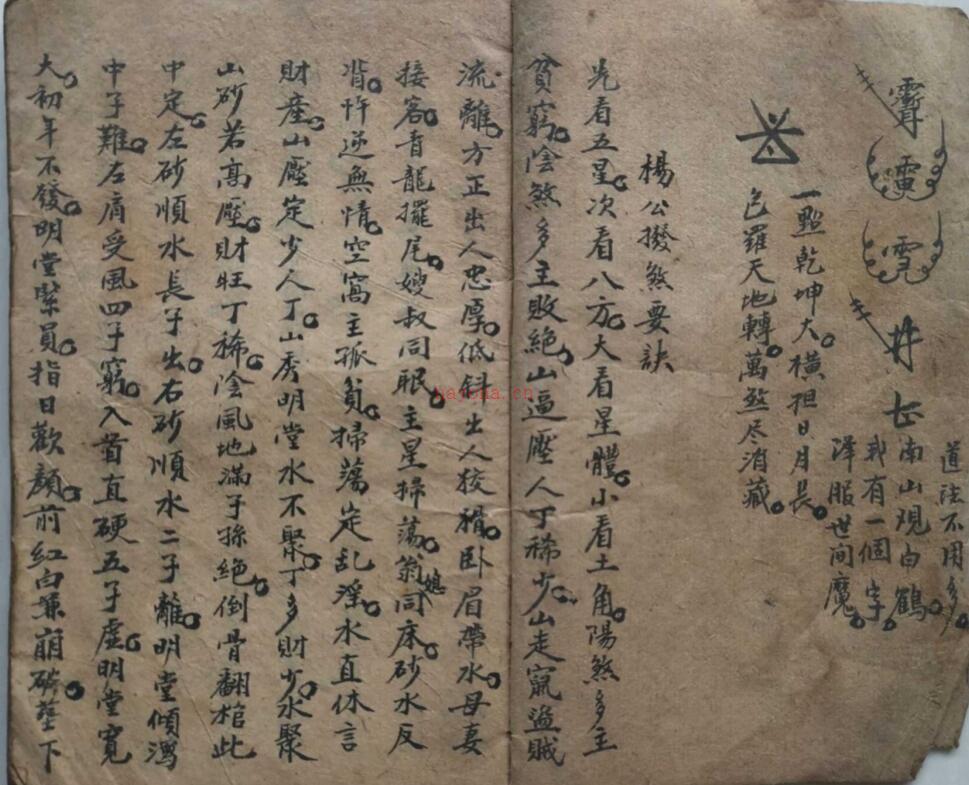 道法不用多
南山观白鶴
我有一個字
降服世间魔
井
一點乾坤大橫担日月長
包羅天地轉萬煞尽消藏
楊公撥煞要訣
先看五星次看八方大看星體小看土角陽煞多主
貧窮陰煞多主敗絶山逼壓人丁稀少山走竄盗賊
流離方正出人忠厚低斜出人狡猾卧眉帶水母妻
接客青龍擺尾嫂叔同眠主星掃蕩翁媳同床砂水反
背忤逆無情空窩主孤貧掃蕩定乱淫水直休言
財産山壓定少人丁山秀明堂水不聚丁多財少水聚
山砂若高壓財旺丁稀陰風地滿子孫絕倒骨翻棺此
中定左砂順水長子出右砂順水二子離明堂傾瀉
中子難左肩受風四子窮入首直硬五子虛明堂寬
大初年不發明堂緊員指日歡顏前紅白兼崩破塋下
hayona.cn